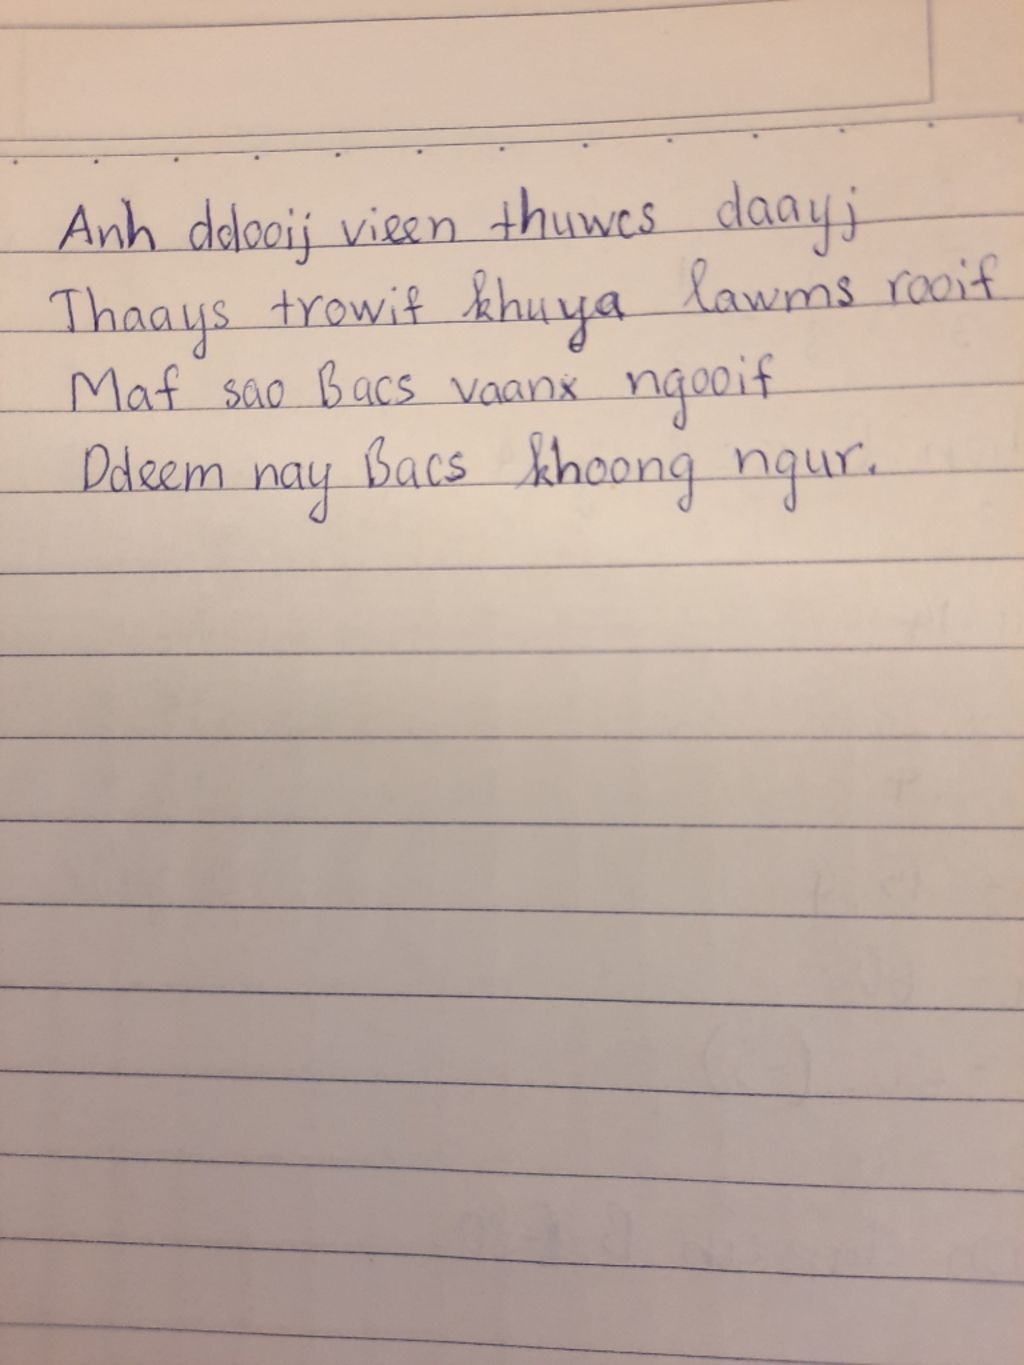 Anh ddooij vieen thuwcs daayj
Thaays trowif khuya lawms rooif
Maf sao Bacs vaanx ngooif
Ddeem nay Bacs khoong ngur.